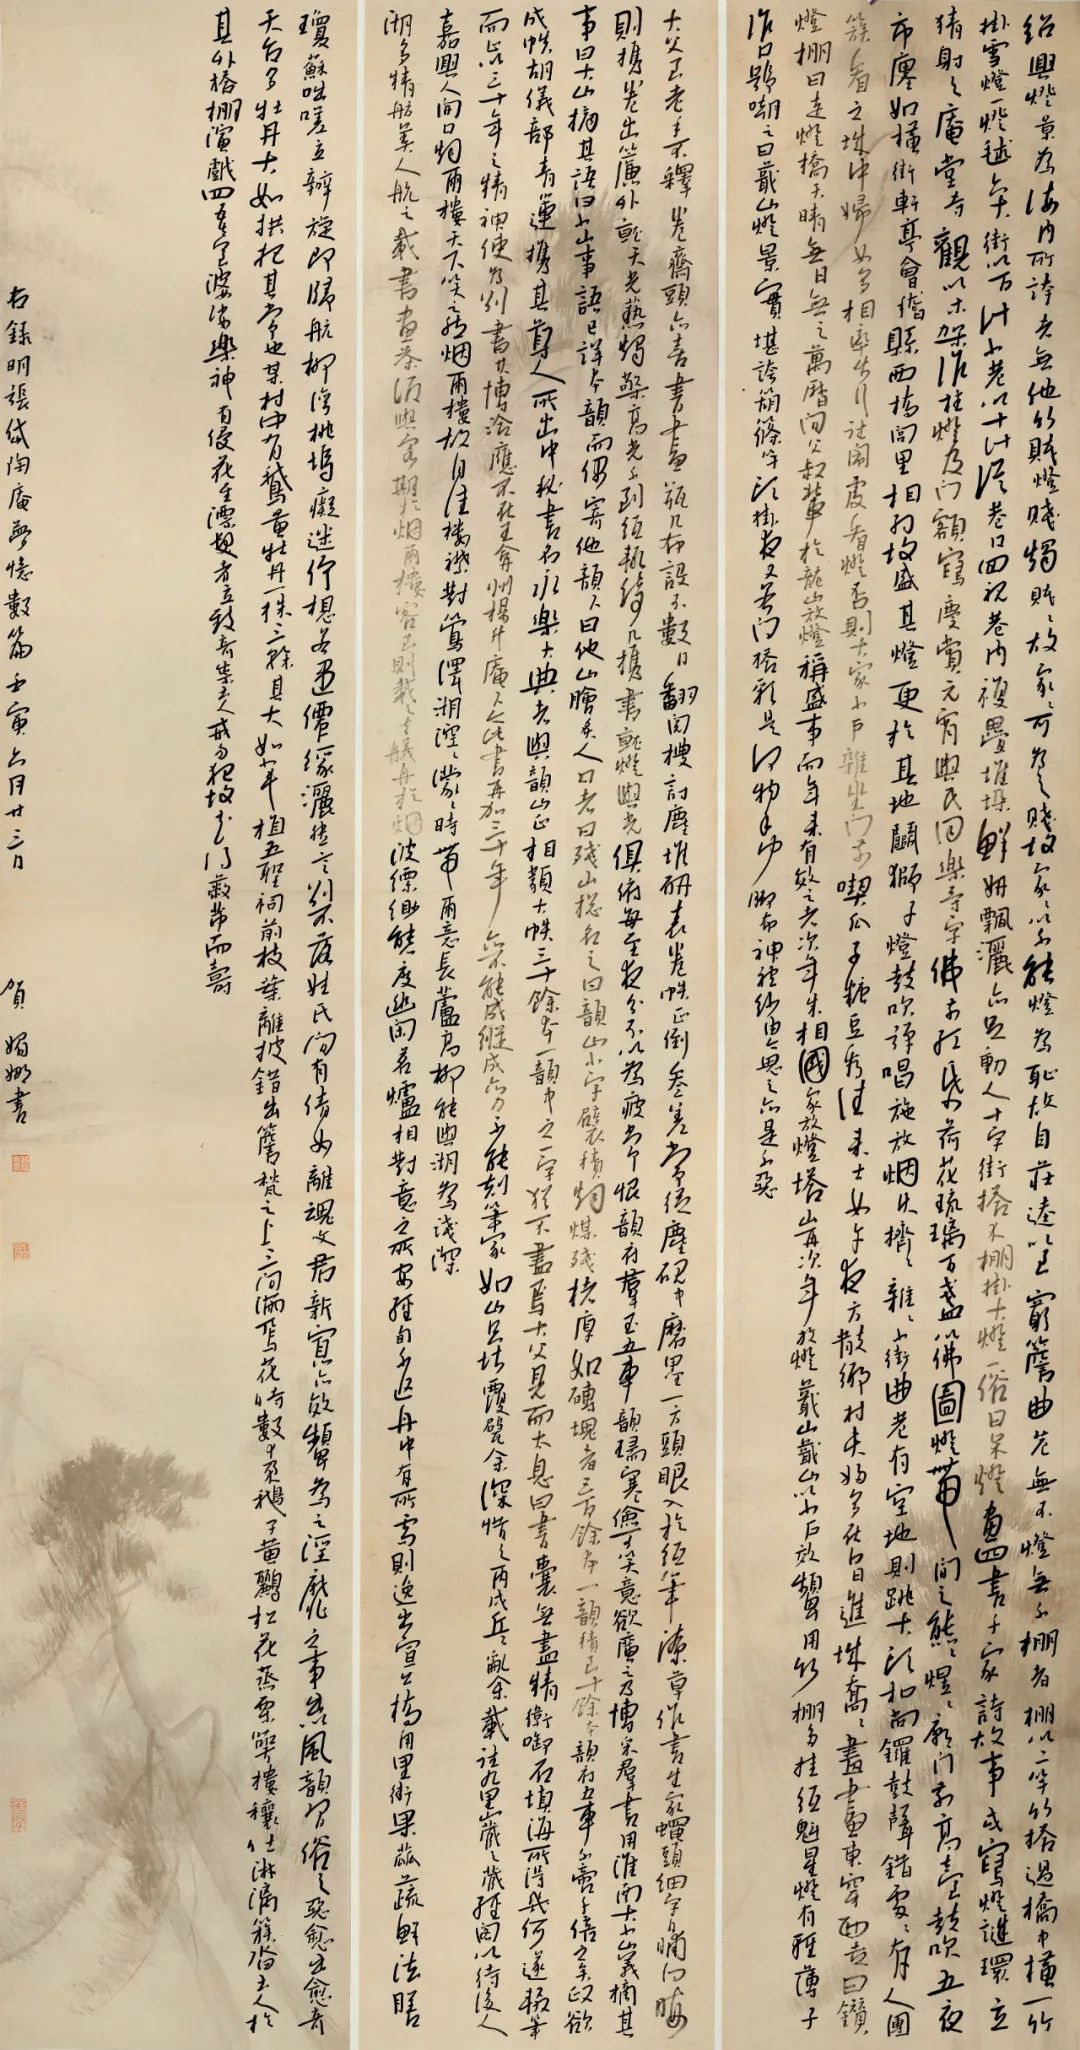 紹興燈景為海內所誇者無他竹賤燈賤燭賤賤故家家可為之賤故家家以不能燈為恥故自莊逵以至窮簷曲巷無不燈無不棚者棚以二竿竹搭過橋中橫一竹
掛雪燈一燈毬六大街以百計小巷以十計從巷口回視巷內複疊堆垛鮮妍飄灑亦足動人十字街搭木棚掛大燈一俗曰呆燈畫四書千家詩故事或寫燈謎環立
猜射之庵堂寺觀以木架作柱燈及門額寫慶賞元宵與民同樂等字佛前紅紙荷花琉璃百盞以佛圖燈帶間之熊熊煜煜廟門前高臺鼓吹五夜
市廛如橫街軒亭會稽縣西橋閭里相約故盛其燈更於其地鬭獅子燈鼓吹彈唱施放烟火擠擠雜雜小街曲巷有空地則跳大頭和尚鑼鼓聲錯處處有人團
簇看之城中婦女多相率步行往鬧處看燈否則大家小戶雜坐門前喫瓜子糖豆看往來士女午夜方散鄉村夫婦多在白日進城喬喬畫畫東穿西走曰鑽
燈棚曰走燈橋天晴無日無之萬曆間父叔輩於龍山放燈稱盛事而年來有效之者次年朱相國家放燈塔山再次年放燈蕺山蕺山以小戶效顰用竹棚多挂紙魁星燈有輕薄子
作口號嘲之曰蕺山燈景實堪誇箶篠竿頭掛夜叉若問搭彩是何物手巾腳布神袍紗由今思之亦是不惡
大父至老手不釋卷齋頭亦喜書畫瓶几布設不數日翻閱搜討塵堆研表卷帙正倒參差常從塵硯中磨墨一方頭眼入於紙筆潦草作書生家蠅頭細字日晡向晦
則攜卷出簾外就天光爇燭檠高光不到紙輒倚几攜書就燈與光俱俯每至夜分不以為疲常恨韻府羣玉五車韻瑞寒儉可笑意欲廣之乃博采羣書用淮南大小山義摘其
事曰大山摘其語曰小山事語已詳本韻而偶寄他韻下曰他山膾炙人口者曰殘山總名之曰韻山小字襞積烟煤殘楮厚如磚塊者三百餘本一韻積至十餘本韻府五車不啻千倍之矣政欲
成帙胡儀部青蓮攜其尊人所出中秘書名永樂大典者與韻山正相類大帙三十餘本一韻中之一字猶不盡焉大父見而太息曰書囊無盡精衛啣石填海所得幾何遂輟筆
而止以三十年之精神使為別書其博洽應不在王弇州楊升庵下今此書再加三十年亦不能成縱成亦力不能刻筆冢如山只堪覆瓿余深惜之丙戌兵亂余載往九里山藏之藏經閣以待後人
嘉興人開口烟雨樓天下笑之然烟雨樓故自佳樓襟對鶯澤湖涳涳濛濛時帶雨意長蘆高柳能與湖為淺深
湖多精舫美人航之載書畫茶酒與客期於烟雨樓客至則載之去艤舟於烟波縹緲態度幽閑茗爐相對意之所安經旬不返舟中有所需則逸出宣公橋甪里街果蓏蔬鮮法膳
瓊蘇咄嗟立辦旋即歸航柳灣桃塢癡迷佇想若遇僊緣灑然言別不落姓氏間有倩女離魂文君新寡亦效顰為之淫靡之事出以風韻習俗之惡愈出愈奇
天台多牡丹大如拱把其常也某村中有鵝黃牡丹一株三榦其大如小斗植五聖祠前枝葉離披錯出簷甃之上三間滿焉花時數十朵鵝子黃鸝松花蒸栗萼樓穰吐淋漓簇沓土人於
其外搭棚演戲四五臺婆娑樂神有侵花至漂髮者立致奇祟土人戒勿犯故花得蔽芾而壽
右錄明張岱陶庵夢憶數篇壬寅六月廿三日 賀媚娜書